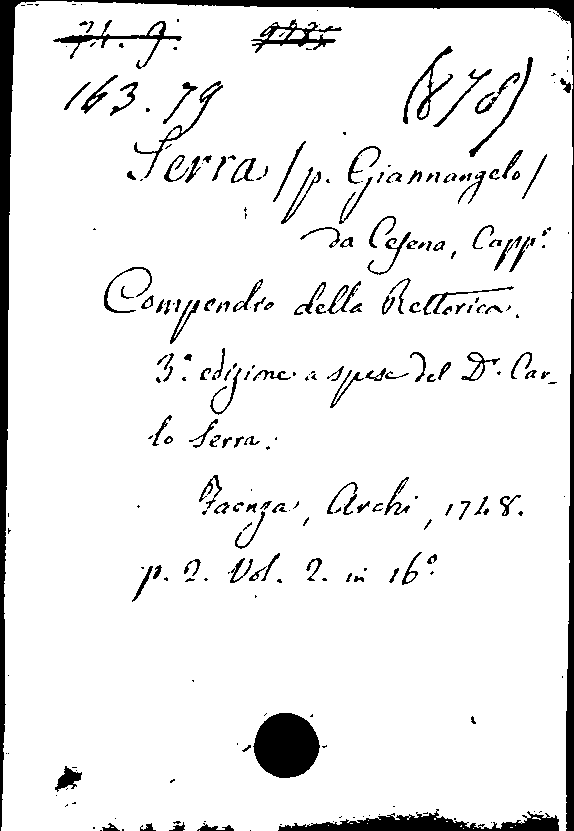 74. 9.
163.79 (878)
Serra / p. Giannangelo /
da Cesena, Capp.º
Compendio della Rettorica.
3.ª edizione a spese del Dr. Car-
lo Serra.
Faenza, Archi, 1748.
p. 2. Vol. 2. in 16º